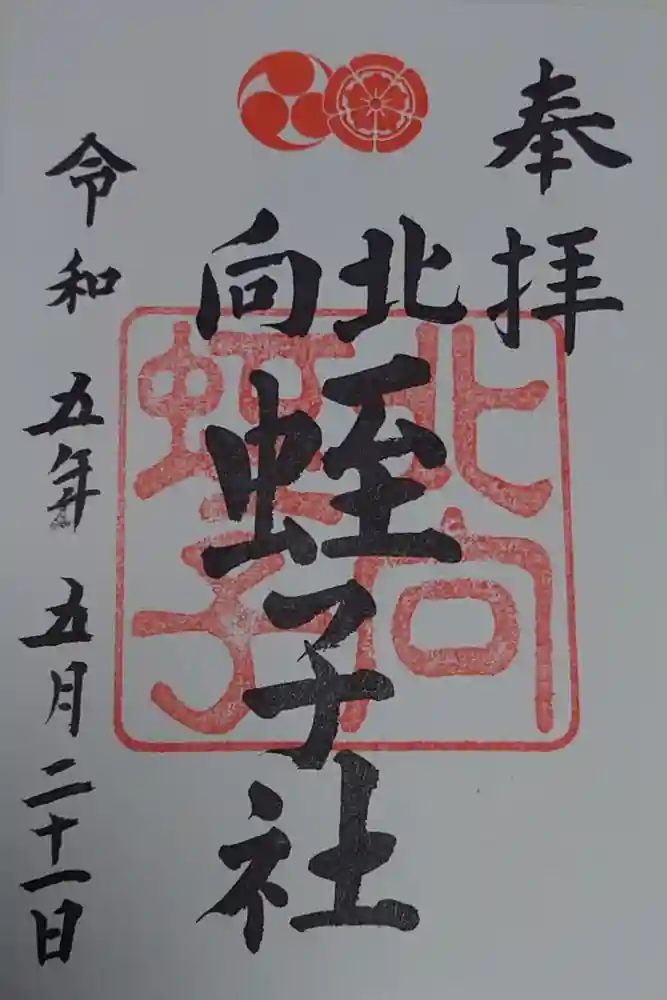 奉拝
北向
蛭子社
北向
蛭子
令和五年五月二十一日